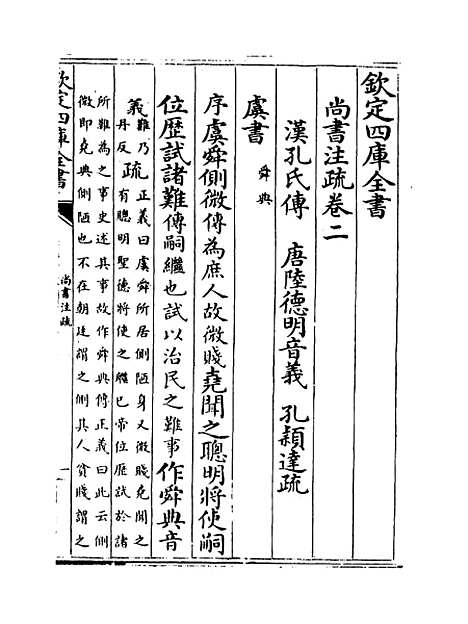 欽定四庫全書
尚書注疏卷二
漢孔氏傳　唐陸德明音義　孔穎達疏
虞書
舜典
序虞舜側微傳為庶人故微賤堯聞之聰明將使嗣
位歴試諸難傳嗣繼也試以治民之難事作舜典音
義難乃丹反疏正義曰虞舜所居側陋身又微賤堯聞之
有聰明聖德將使之繼己帝位歴試於諸
所難為之事史述其事故作舜典傳正義曰此云側
微即堯典側陋也不在朝廷謂之側其人貧賤謂之
欽定四庫全書
尚書注疏
一